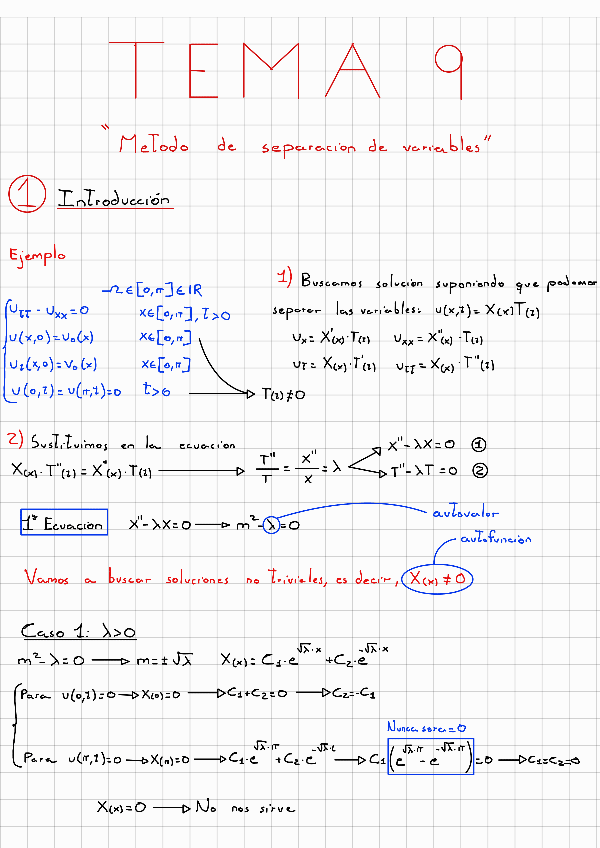 TEMA 9
"Metodo de separacion de variables"
1 Introducción
Ejemplo
Ω∈[0,π]∈ℝ
u_tt - u_xx = 0 x∈[0,π], t>0
u(x,0)=u₀(x) x∈[0,π]
u_t(x,0)=v₀(x) x∈[0,π]
u(0,t)=u(π,t)=0 t>0 → T(t)≠0
1) Buscamos solución suponiendo que podemos
separar las variables: u(x,t)=X(x)T(t)
u_x=X'(x)·T(t) u_xx=X''(x)·T(t)
u_t=X(x)·T'(t) u_tt=X(x)·T''(t)
2) Sustituimos en la ecuacion
X(x)·T''(t)=X''(x)·T(t) → T''/T = X''/X = λ
X''-λX=0 ①
T''-λT=0 ②
1ª Ecuación X''-λX=0 → m²-λ=0
autovalor
autofunción
Vamos a buscar soluciones no triviales, es decir, X(x)≠0
Caso 1: λ>0
m²-λ=0 → m=±√λ X(x)=C₁·e^(√λ·x)+C₂·e^(-√λ·x)
Para u(0,t)=0 → X(0)=0 → C₁+C₂=0 → C₂=-C₁
Nunca sera=0
Para u(π,t)=0 → X(π)=0 → C₁·e^(√λ·π)+C₂·e^(-√λ·t) → C₁(e^(√λ·π) - e^(-√λ·π))=0 → C₁=C₂=0
X(x)=0 → No nos sirve